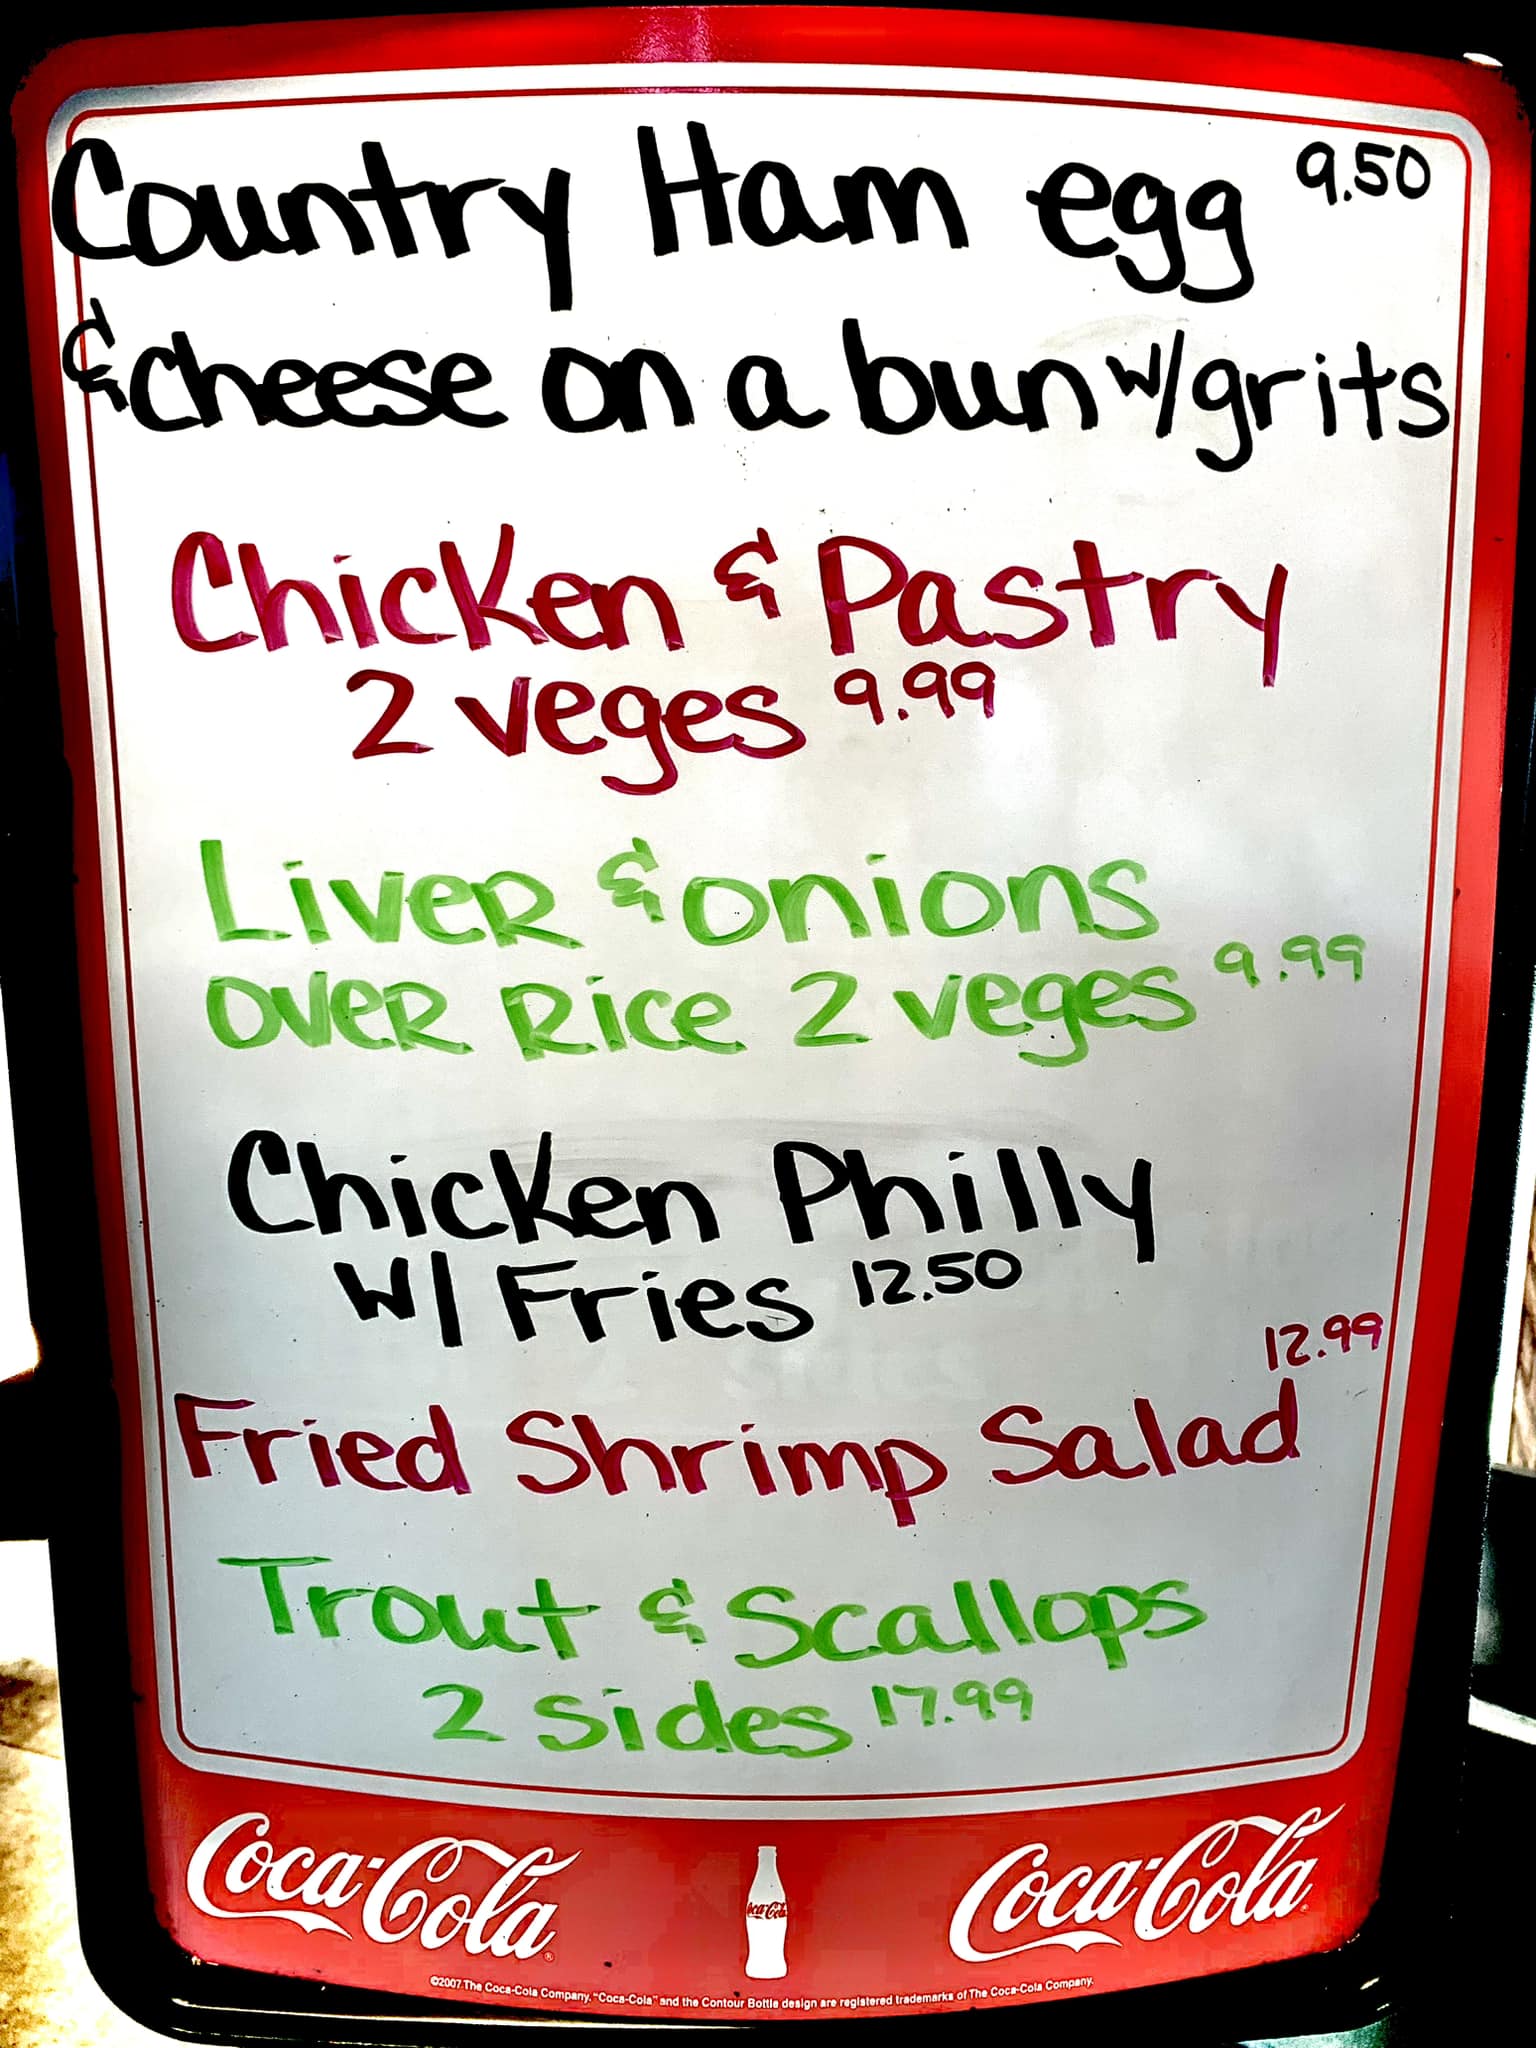 Country Ham egg 9.50
& cheese on a bun w/grits
Chicken & Pastry
2 veges 9.99
Liver & onions
over Rice 2 veges 9.99
Chicken Philly
w/ Fries 12.50
12.99
Fried Shrimp Salad
Trout & Scallops
2 Sides 17.99
Coca-Cola® Coca-Cola Coca-Cola®
©2007 The Coca-Cola Company. "Coca-Cola" and the Contour Bottle design are registered trademarks of The Coca-Cola Company.